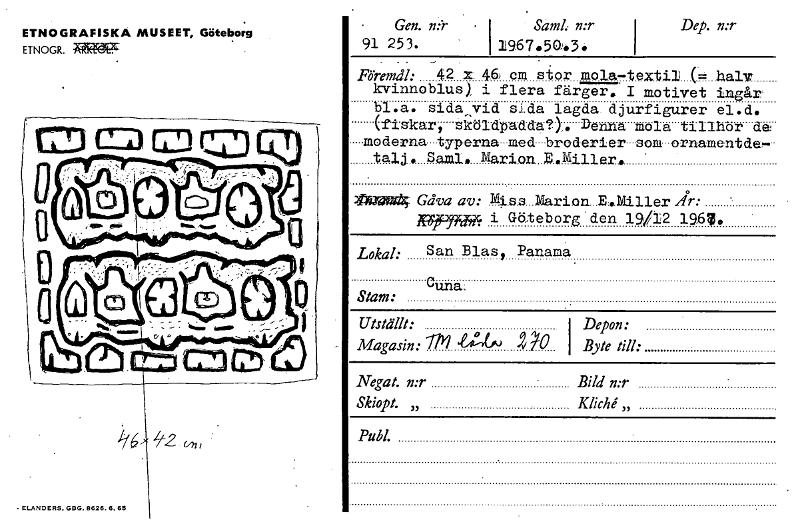 ETNOGRAFISKA MUSEET, Göteborg
ETNOGR. ARKEOL.
46×42 cm.
ELANDERS, GBG. 8625. 6. 65
Gen. n:r Saml. n:r Dep. n:r
91 253. 1967.50.3.
Föremål: 42 x 46 cm stor mola-textil (= halv
kvinnoblus) i flera färger. I motivet ingår
bl.a. sida vid sida lagda djurfigurer el.d.
(fiskar, sköldpadda?). Denna mola tillhör de
moderna typerna med broderier som ornamentde-
talj. Saml. Marion E.Miller.
Gåva av: Miss Marion E.Miller År:
Köp från: i Göteborg den 19/12 1967.
Lokal: San Blas, Panama
Stam: Cuna.
Utställt: Depon:
Magasin: TM låda 270 Byte till:
Negat. n:r Bild n:r
Skiopt. „ Kliché „
Publ.